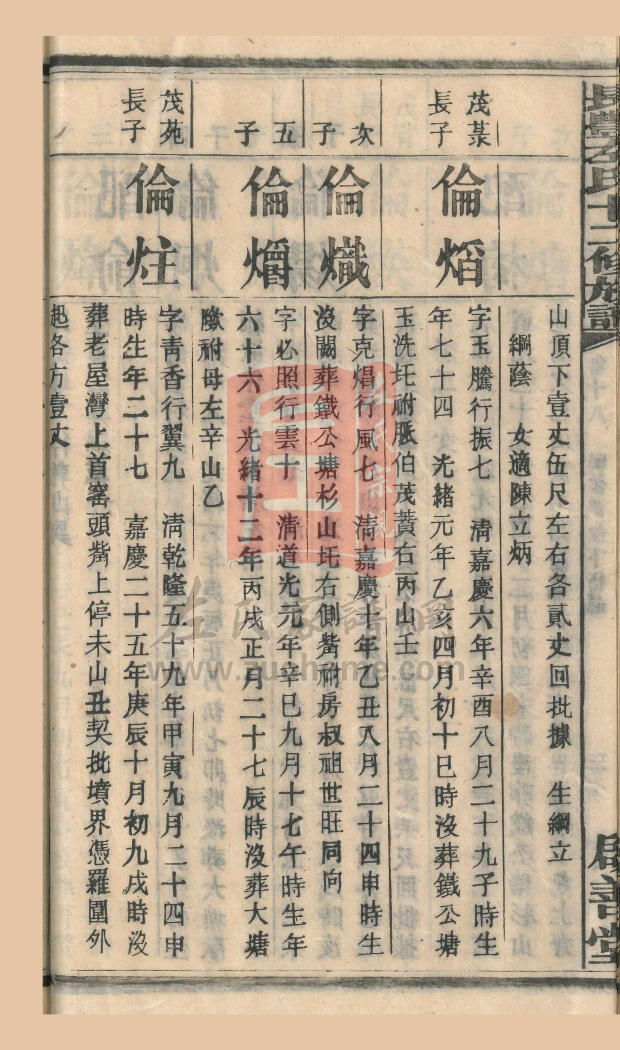 長豐左氏十二修族譜
啟善堂
山頂下壹丈伍尺左右各貳丈回批據 生綱立
綱蔭 女適陳立炳
茂菉長子
倫熖
字玉騰行振七 清嘉慶六年辛酉八月二十九子時生
年七十四 光緒元年乙亥四月初十巳時沒葬鐵公塘
玉洗圫祔脈伯茂蕢右丙山壬
次子
倫熾
字克焻行風七 清嘉慶十年乙丑八月二十四申時生
沒闕葬鐵公塘杉山圫右側嘴祔房叔祖世旺同向
五子
倫爝
字必照行雲十 清道光元年辛巳九月十七午時生年
六十六 光緒十二年丙戌正月二十七辰時沒葬大塘
墈祔母左辛山乙
茂苑長子
倫炷
字青香行翼九 清乾隆五十九年甲寅九月二十四申
時生年二十七 嘉慶二十五年庚辰十月初九戌時沒
葬老屋灣上首窰頭嘴上停未山丑契批墳界憑羅圍外
起各方壹丈
左氏家譜網
www.zuohome.com